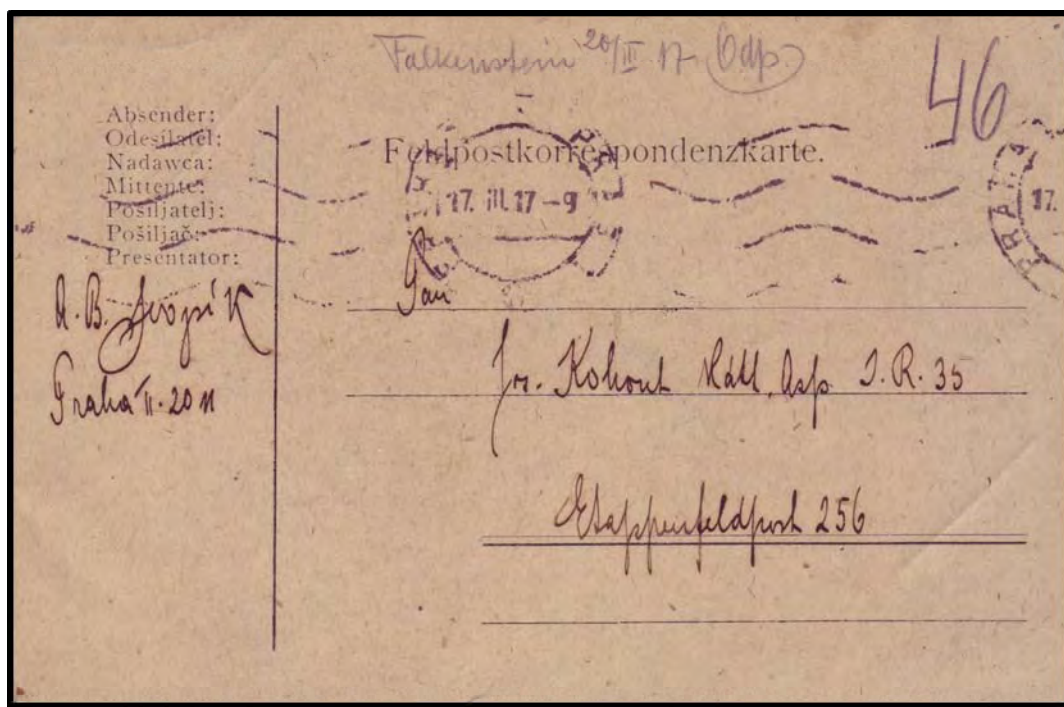 Falkenstein 20/III 17 Odp.
46
Absender:
Odesílatel:
Nadawca:
Mittente:
Pošiljatelj:
Pošiljač:
Presentator:
Feldpostkorrespondenzkarte.
17. III. 17 – 9
PRAHA
17.
A. B.
Praha II. 20
Pan
Jos. Kohout Kad. Asp. I. R. 35
Etappenfeldpost 256